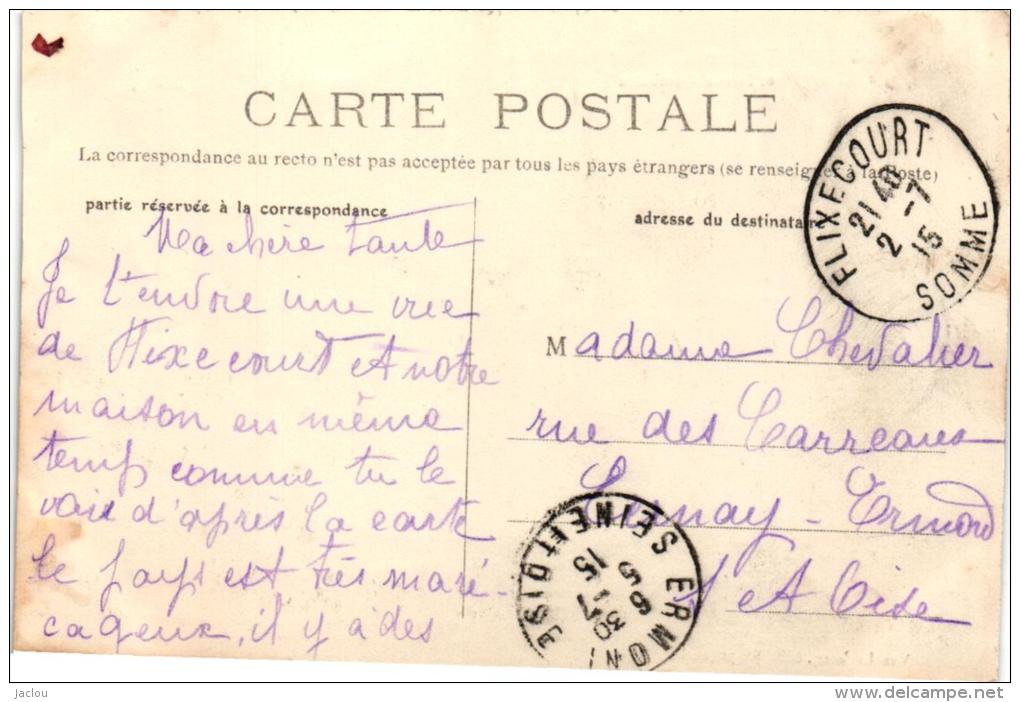 CARTE POSTALE
La correspondance au recto n'est pas acceptée par tous les pays étrangers (se renseigner à la Poste)
partie réservée à la correspondance
adresse du destinataire
Ma chère tante
Je t'envoie une vue
de Flixecourt et notre
maison en même
temps comme tu le
vois d'après la carte
le pays est très maré-
cageux, il y a des
Madame Chevalier
rue des Carreaux
Cernay - Ermont
S et Oise
FLIXECOURT
21 40
2 -7
15
SOMME
ERMONT
SEINE ET OISE
30
7
15
Jaclou
www.delcampe.net